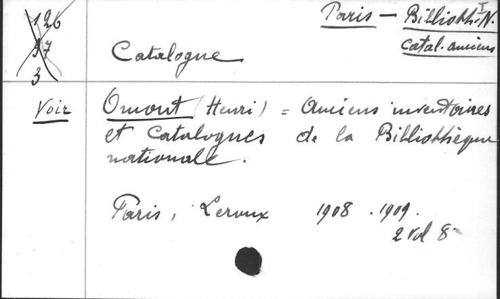 126
97
3
Paris — Biblioth. N.
I
Catal. anciens
Catalogue
Voir
Omont (Henri) = Anciens inventaires
et Catalogues de la Bibliothèque
nationale.
Paris, Leroux 1908 . 1909.
2 vol 8°